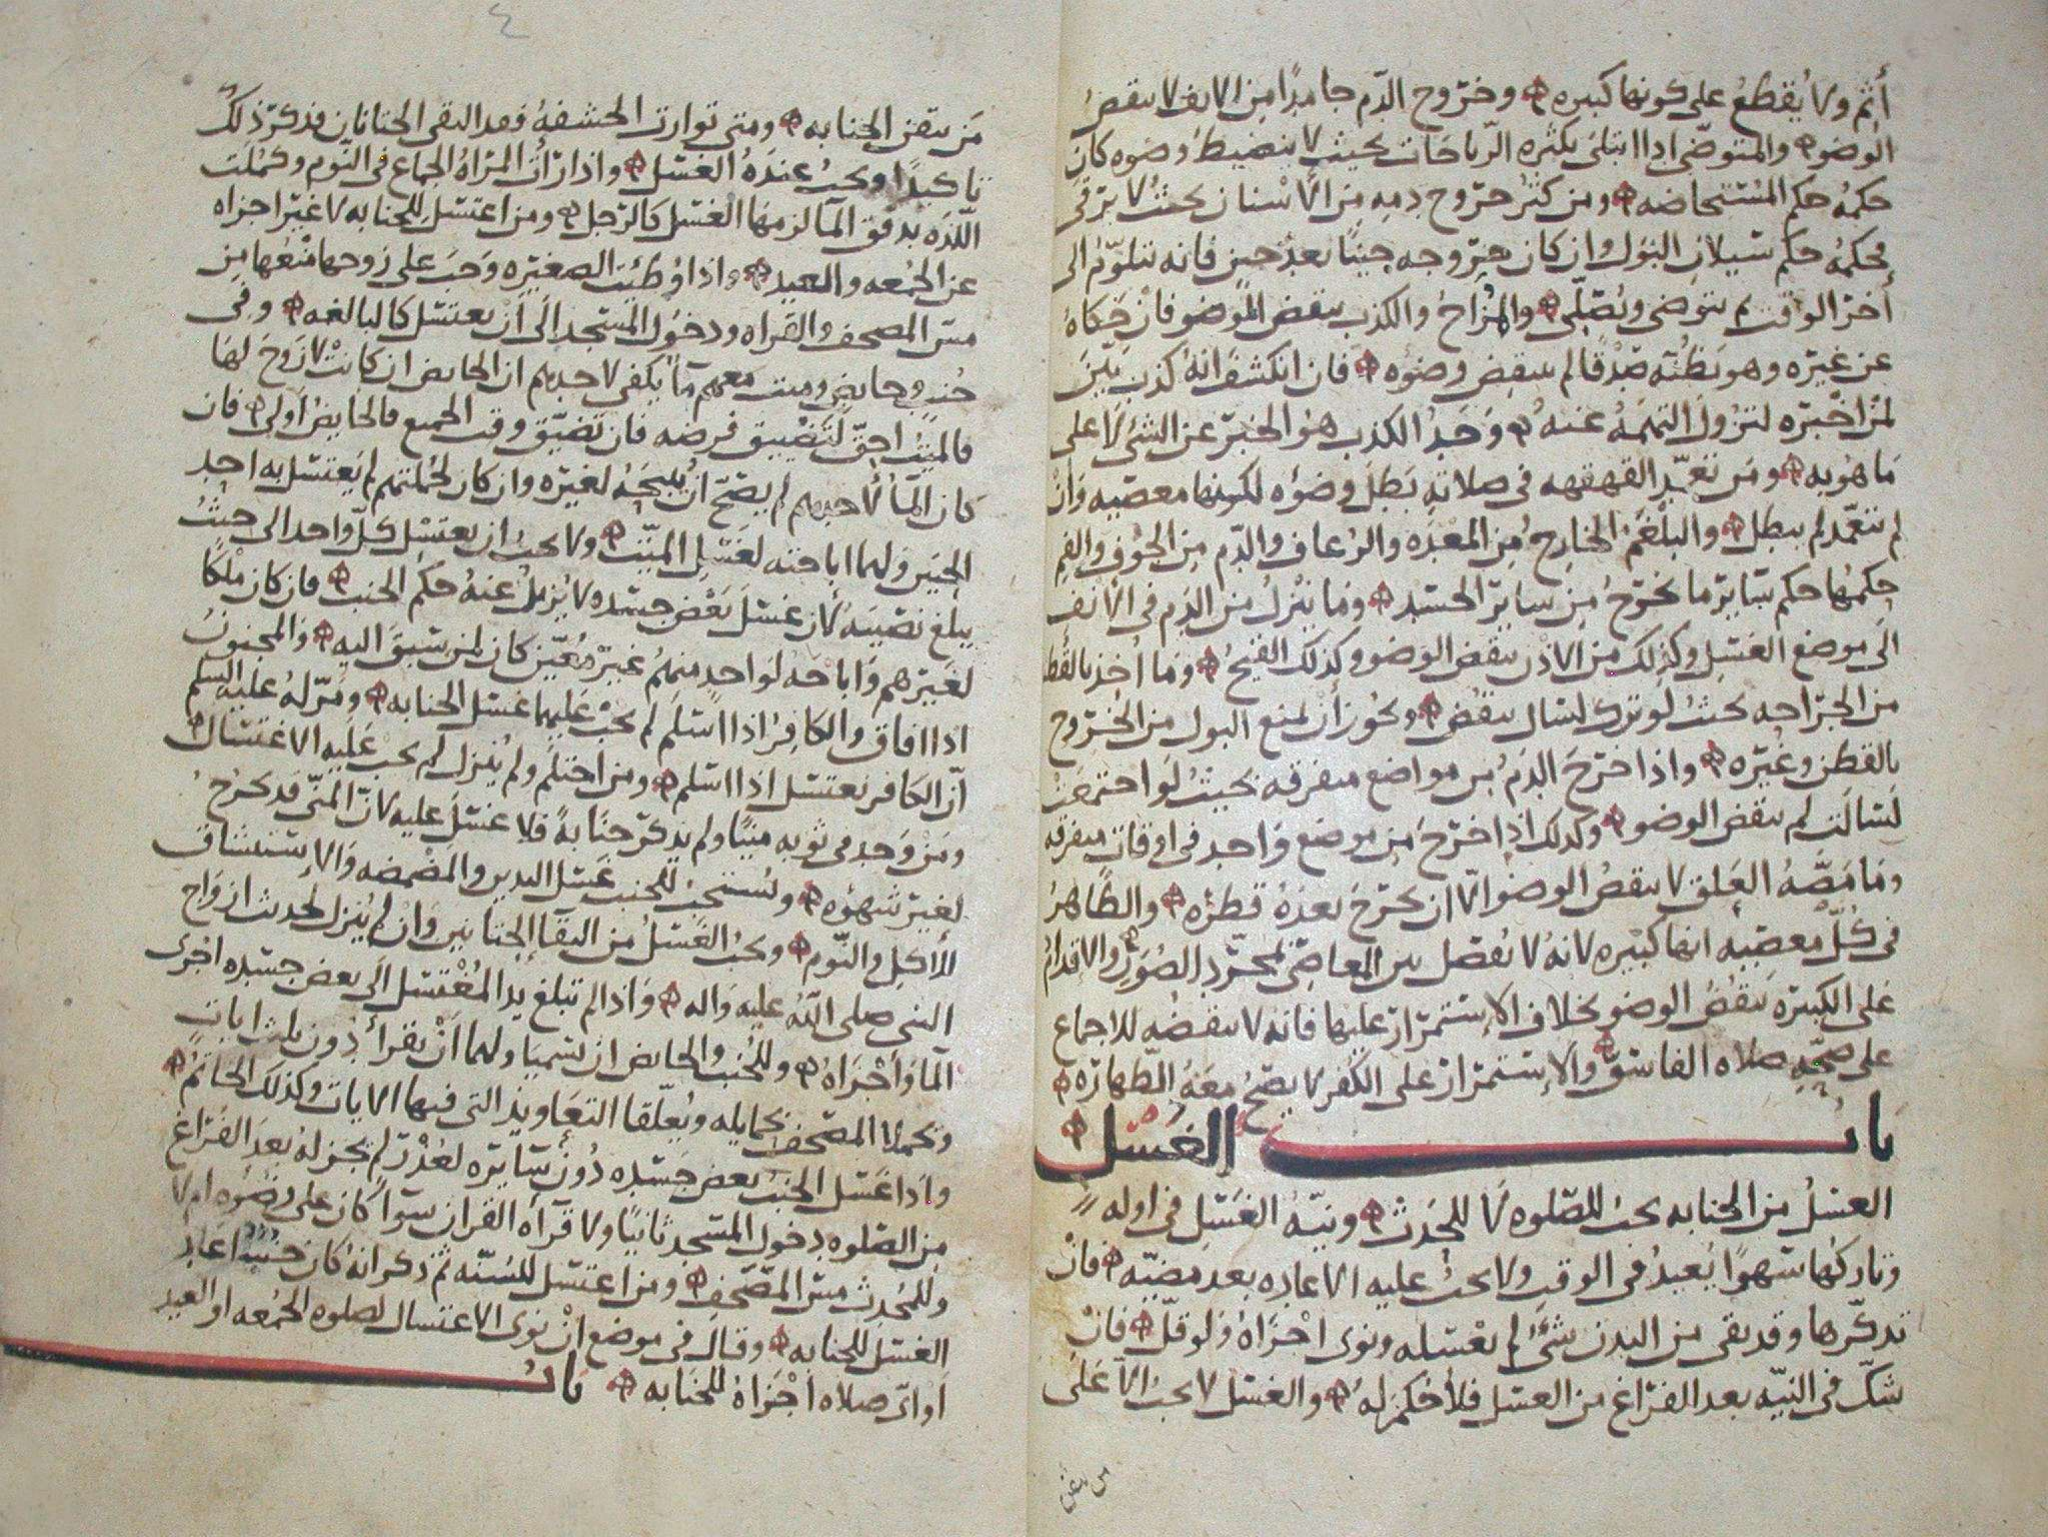 أثم ولا يُقطعُ على كونها كبيره وخروج الدّم جامدًا من الانف لا ينقضُ
الوضو والمتوضّى اذا ابتلى بكثره الرّياحات بحيث لا ينضبط وضوه كان
حكمهُ حكم المُستحاضه ومن كثُر خروج دمهِ من الأسنان بحيثُ لا يرقى
فحكمهُ حكم سيلان البَول وان كان خروجه حينًا بعد حين فانه يتلوّم الى
أخر الوقت ثم يتوضى ويُصلّى والمُزاحُ والكذب ينقض الوضو فان حكاهُ
عن غيره وهو يظنّه صدقًا لم ينقض وضوَه فان انكشف انهُ كذب بيّن
لمن اخبره لتزول التهمَهُ عنهُ وَحَدُّ الكذب هوُ الخبر عن الشى لا على
ما هُو به ومَن تعمّد القهقهه في صلاتهِ بَطل وضوُه لكونها معصيه وان
لم يتعمّد لم يبطل والبلغم الخارجُ من المعده والرُعاف والدّم من الجوف والفم
حكمُها حكم سَايِر ما يخرجُ من سايِر الجسَد وما ينزلُ من الدّم فى الأنف
الى موضع الغسل وكذلك من الأذن ينقض الوضو وكذلك القيحُ وما أخذ بالقطن
من الجراحه بحيث لو ترك لسال ينقض ويجُوز أن لمنع البول من الخروج
بالقطن وغيره واذا خرج الدّمُ من مواضع متفرقه بحيثُ لو اجتمعَتْ
لسالت لم ينقض الوضو وكذلك اذا خرج من موضع واحد فى اوقات متفرقه
وما مَصّهُ العلق لا ينقضُ الوضو الّا ان يخرج بعدهُ قطره والظاهرُ
فى كلّ معصيه انها كبيره لانهُ لا يفصل بين المعاصى لمجرّد الصُوَر والاقدامُ
على الكبيره ينقُضُ الوضو بخلاف الإستمرار عليها فانه لا ينقضُه للاجماع
على صحّهِ صلاه الفاسق والإستمرار على الكفر لا يصحُ معَهُ الطّهاره
باب الغسل
الغسلُ من الجنابه يجبُ للصّلوه لا للحَدث ونيّهُ الغسل فى اوله
وتاركُها سَهوًا يُعيدُ فى الوقتِ ولا يجبُ عليه الاعاده بعد مضيّه فان
تذكّرها وقد بقى من البدن شىٌ لم يغسله ونوى اجْزاهُ وَلو قلّ فان
شكّ فى النيّه بعد الفراغ من الغسل فلا حُكم لهُ والغسل لا يجبُ الّا على
من يتقن
مَن يتقن الجنابه ومتى توارت الحشفهُ فقد التقى الختانان فذكر ذلك
تاكيدًا ويجبُ عندَهُ الغسْل واذا رأت المرْاهُ الجماع فى النّوم وكمُلَت
اللّذه بدفق المآ لزمها الغسْل كالرّجل ومن اغتسَل للجنابه لا غير اجزاه
عن الجُمعه والعيد واذا وُطيَت الصغيره وَجَبَ على زوجها منعُها من
مسّ المصحف والقراه ودخول المسْجد الى ان يغتسل كالبالغه وفى
جُنُبٍ وحايضٍ وميت معهم مآ يكفى لاحدهم ان الحايض ان كانت لا زوج لها
فالميتُ احقّ لتضيّق فرضه فان تضيّق وقت الجميع فالحايضُ اولى فان
كان المآ لأحدهم لم يصّح ان يُبيحَهُ لغيره وان كان لجملتهم لم يغتسل به احد
الحيّين ولهما اباحته لغسْلِ الميّت ولا يجبُ ان يغتسل كلّ واحد الى حيثُ
يبلغ نصيبَهُ لان غسْل بَعْض جسَده لا يُزيل عنهُ حكم الجنب فان كان ملكًا
لغيرهم وَاباحَه لواحدٍ منهمُ غير مُعيّن كان لمن سَبقَ اليه والمجنونُ
اذا افاق والكافرُ اذا اسْلم لم يجب عليهما غسْل الجنابه ومَرّ لهُ عليه السلم
أنّ الكافر يغتسل اذا اسْلم ومن احتلم ولم يُنزل لم يجب عَليه الاغتسال
ومَنْ وَجد فى ثوبه منيًا ولم يذكر جنابهً فلا غسْل عليه لانّ المنىّ قد يخرجُ
لغير شهوْه ويُستحبُ للجُنب غسْل اليدين والمضمضه والإستنشاق
للأكل والنّوم ويجبُ الغسْلُ من التقآ الختانين وَانْ لم يُنزل لحديث ازواج
النبى صلى اللّهُ عليه واله واذا لم تبلغ يد المُغتسل الى بعض جسَده اجرى
المآ وأجْزاهُ وللجُنب والحايض ان يُسَميَا ولهما أنْ يقرأ دون ثلث ايات
ويحملا المصْحف بحمايله ويُعلّقا التعَاويذ التى فيها الآيات وكذلك الخاتمُ
واذا غسَل الجُنبُ بعض جسَده دُون سَايره لعُذر لم يجز لهُ بعد الفراغ
من الصّلوه دخول المسْجد ثانيًا ولا قرآهُ القرآن سوآ كان على وضوه ام لا
وللمُحدِث مسّ المصْحف ومن اغتسل للسُنّه ثم ذكر انهُ كان جُنُبًا اعاد
الغسْل للجنابه وقال فى موضع انْ نوى الاغتسال لصلوه الجُمعه او العيد
او اىّ صلاه اجْزاهُ للجنابه باب